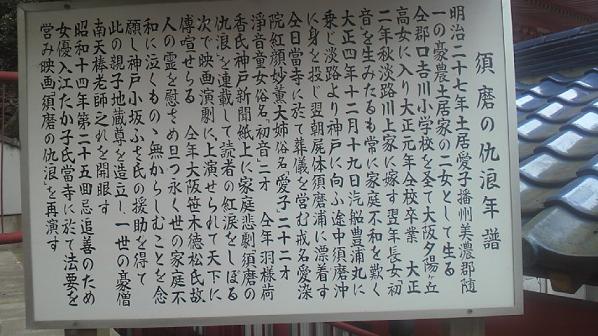 須磨の仇浪年譜
明治二十七年土居愛子播州美濃郡随
一の豪農土居家の二女として生る
仝郡口吉川小学校を全て大阪夕陽ヶ丘
高女に入り大正元年仝校卒業 大正
二年秋淡路川上家に嫁す翌年長女初
音を生みたるも常に家庭不和を歎く
大正四年十二月十九日汽船豊浦丸に
乗じ淡路より神戸に向ふ途中須磨沖
に身を投じ翌朝屍体須磨浦に漂着す
仝日当寺に於て葬儀を営む戒名愛染
院紅顔妙薫大姉俗名愛子二十二才
浄音童女俗名初音二才 仝年羽様荷
香氏神戸新聞紙上に家庭悲劇須磨の
仇浪を連載して読者の紅涙をしぼる
次で映画演劇に上演せられて天下に
傳宣せらる 仝年大阪笹木徳松氏故
人の霊を慰さめ旦つ永く世の家庭不
和に泣くものゝ無からしむことを念
願し神戸小坂ふさ氏の援助を得て
此の親子地蔵尊を造立し一世の豪僧
南天棒老師之れを開眼す
昭和十四年第二十五回忌追善のため
女優入江たか子氏當寺に於て法要を
営み映画須磨の仇浪を再演す